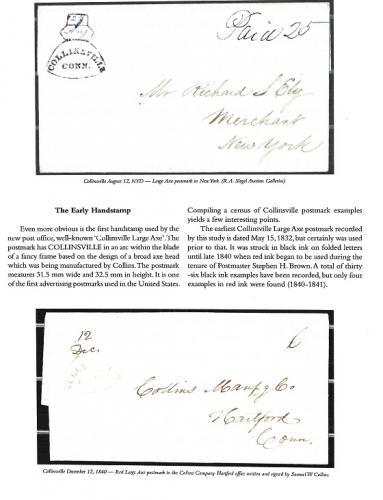 COLLINSVILLE
CONN.
Paid 25
Mr Richard S Ely
Merchant
New York
Collinsville August 12, NYD — Large Axe postmark to New York. (R.A. Siegel Auction Galleries)
The Early Handstamp
Even more obvious is the first handstamp used by the
new post office, well-known 'Collinsville Large Axe'. The
postmark has COLLINSVILLE in an arc within the blade
of a fancy frame based on the design of a broad axe head
which was being manufactured by Collins. The postmark
measures 31.5 mm wide and 32.5 mm in height. It is one
of the first advertising postmarks used in the United States.
Compiling a census of Collinsville postmark examples
yields a few interesting points.
The earliest Collinsville Large Axe postmark recorded
by this study is dated May 15, 1832, but certainly was used
prior to that. It was struck in black ink on folded letters
until late 1840 when red ink began to be used during the
tenure of Postmaster Stephen H. Brown. A total of thirty
-six black ink examples have been recorded, but only four
examples in red ink were found (1840-1841).
12
Dec.
6
Collins Manfg Co
Hartford
Conn.
Collinsville December 12, 1840 — Red Large Axe postmark to the Collins Company Hartford office written and signed by Samuel W Collins.